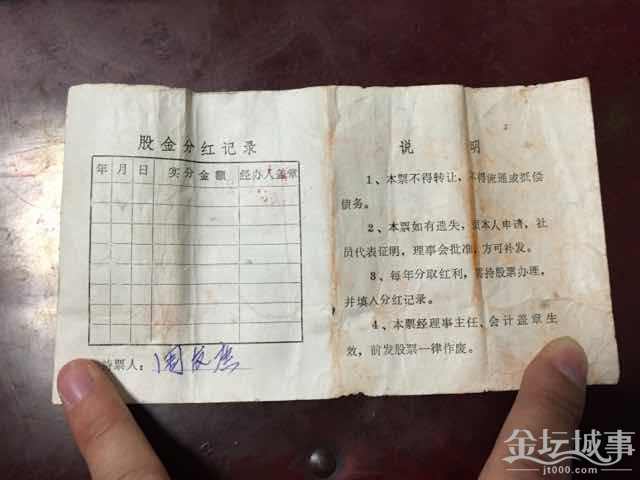 股金分红记录
年 月 日 实分金额 经办人盖章
持票人：
说 明
1、本票不得转让，不得流通或抵偿
债务。
2、本票如有遗失，须本人申请，社
员代表证明，理事会批准，方可补发。
3、每年分取红利，需持股票办理，
并填入分红记录。
4、本票经理事主任、会计盖章生
效，前发股票一律作废。
金坛城事
jt000.com